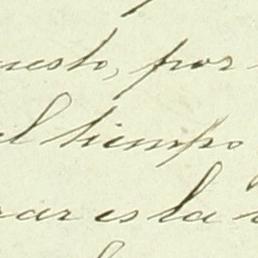 uesto, por
el tiempo
rar es la